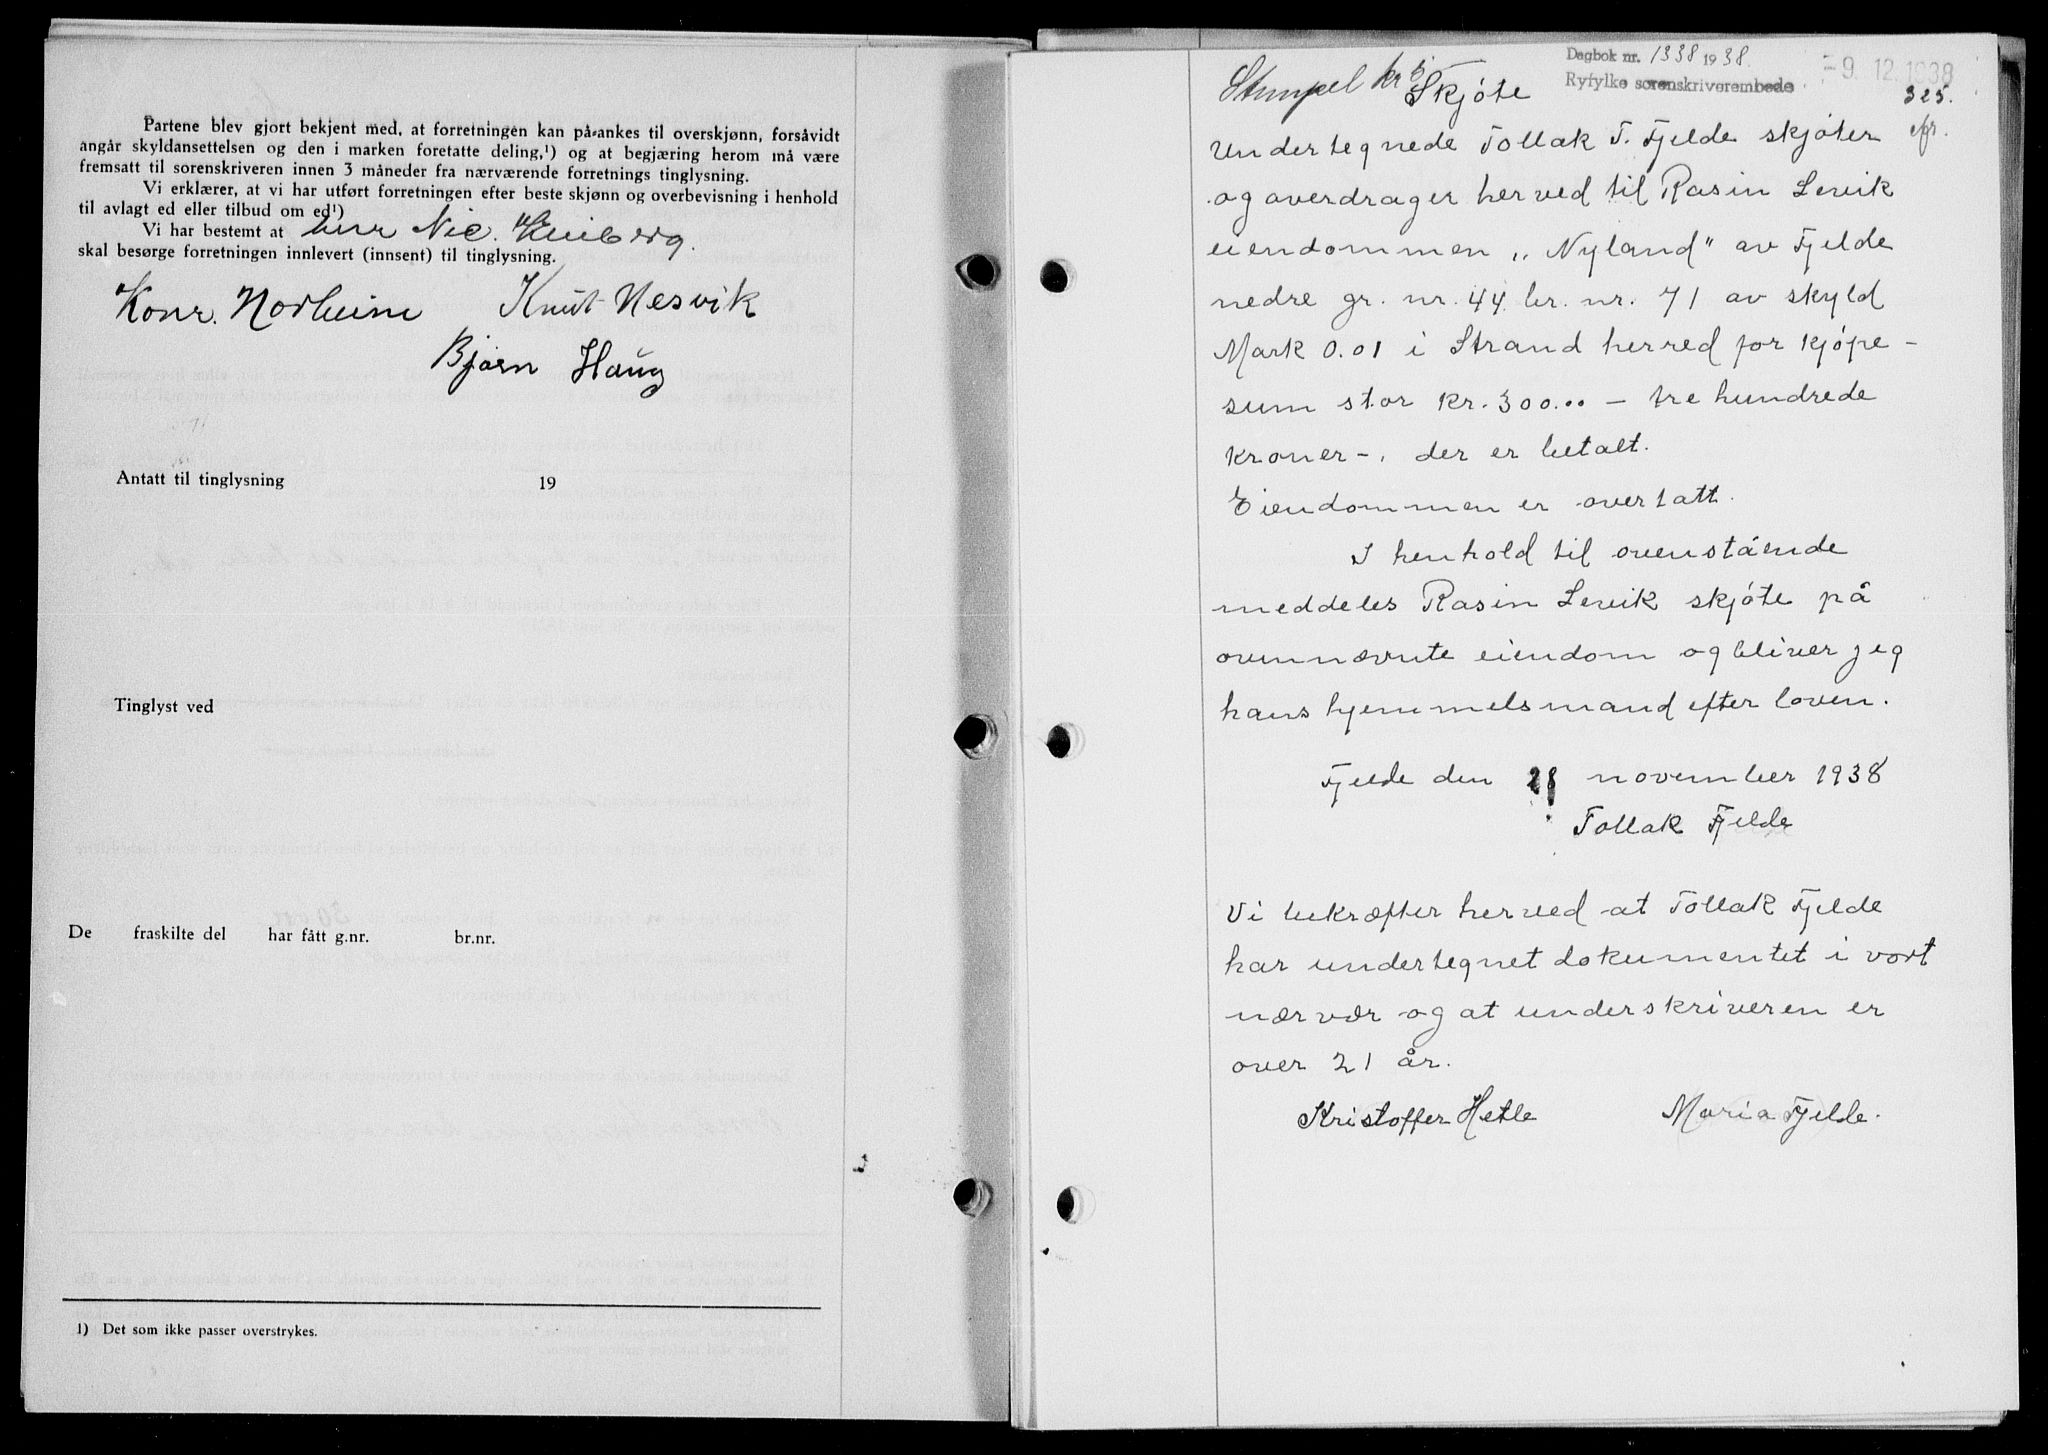 Partene blev gjort bekjent med, at forretningen kan på-ankes til overskjønn, forsåvidt
angår skyldansettelsen og den i marken foretatte deling,¹) og at begjæring herom må være
fremsatt til sorenskriveren innen 3 måneder fra nærværende forretnings tinglysning.
Vi erklærer, at vi har utført forretningen efter beste skjønn og overbevisning i henhold
til avlagt ed eller tilbud om ed¹)
Vi har bestemt at herr Nic. Heiberg.
skal besørge forretningen innlevert (innsent) til tinglysning.
Konr. Norheim Knut Nesvik
Bjørn Haug
Antatt til tinglysning 19
Tinglyst ved
De fraskilte del har fått g.nr. br.nr.
1) Det som ikke passer overstrykes.
Dagbok nr. 1338 1938.
Ryfylke sorenskriverembede
-9. 12. 1938
325.
Stempel kr 3
Skjøte
Undertegnede Tollak T. Fjelde skjøter
og overdrager herved til Rasin Lervik
eiendommen „Nyland" av Fjelde
nedre gr. nr. 44 br. nr. 71 av skyld
Mark 0.01 i Strand herred for kjøpe-
sum stor kr. 300.00 - tre hundrede
kroner-, der er betalt.
Eiendommen er overtatt.
I henhold til ovenstående
meddeles Rasin Lervik skjøte på
ovennævnte eiendom og bliver jeg
hans hjemmelsmand efter loven.
Fjelde den 28 november 1938
Tollak Fjelde
Vi bekræfter herved at Tollak Fjelde
har undertegnet dokumentet i vort
nærvær og at underskriveren er
over 21 år.
Kristoffer Hetle Maria Fjelde.